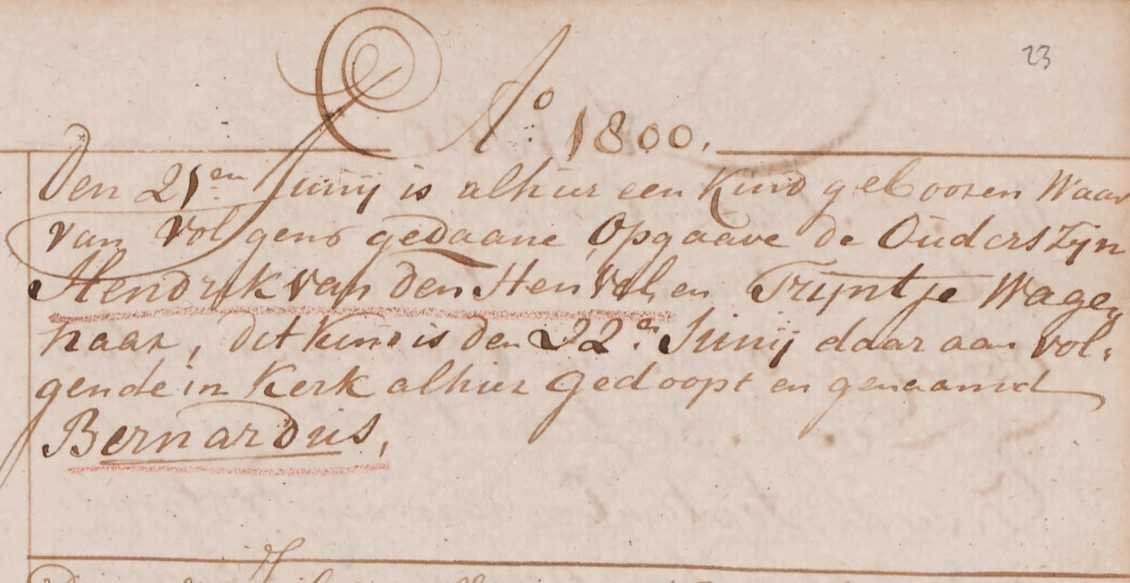 23
Ao 1800.
Den 21en Junij is alhier een Kind gebooren Waar
van volgens gedaane Opgaave de Ouders Zyn
Hendrik van den Heuvel, en Trijntje Wage,,
naar, dit kind is den 22en Junij daar aan vol,
gende in Kerk alhier gedoopt en genaamd
Bernardus,